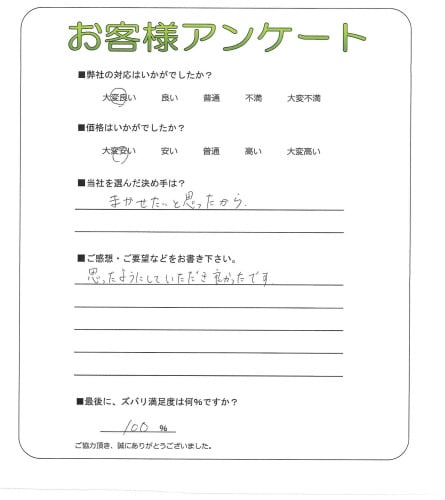 お客様アンケート
■弊社の対応はいかがでしたか？
大変良い 良い 普通 不満 大変不満
■価格はいかがでしたか？
大変安い 安い 普通 高い 大変高い
■当社を選んだ決め手は？
まかせたいと思ったから.
■ご感想・ご要望などをお書き下さい。
思ったようにしていただき良かったです.
■最後に、ズバリ満足度は何%ですか？
100 %
ご協力頂き、誠にありがとうございました。